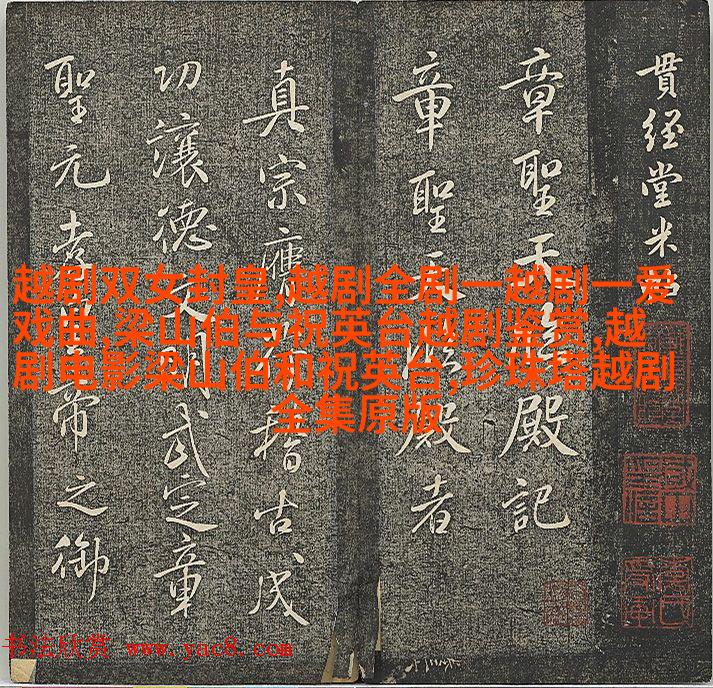 貫經堂米
章聖天殿記
章聖天臨殿者
真宗膺稽古成
功讓德文明武定章
聖元孝皇帝之御
越剧双女封皇,越剧全剧一越剧一爱
戏曲,梁山伯与祝英台越剧鉴赏,越
剧电影梁山伯和祝英台,珍珠塔越剧
全集原版
书法欣赏 www.yac8.com